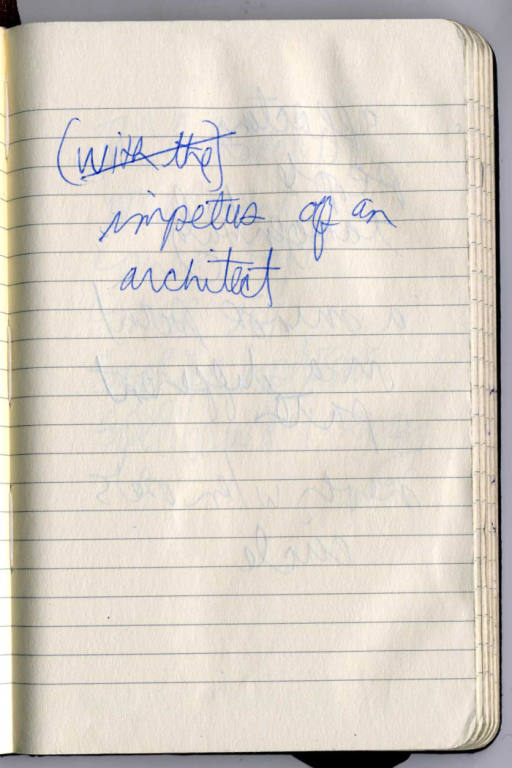 (with the)
impetus of an
architect